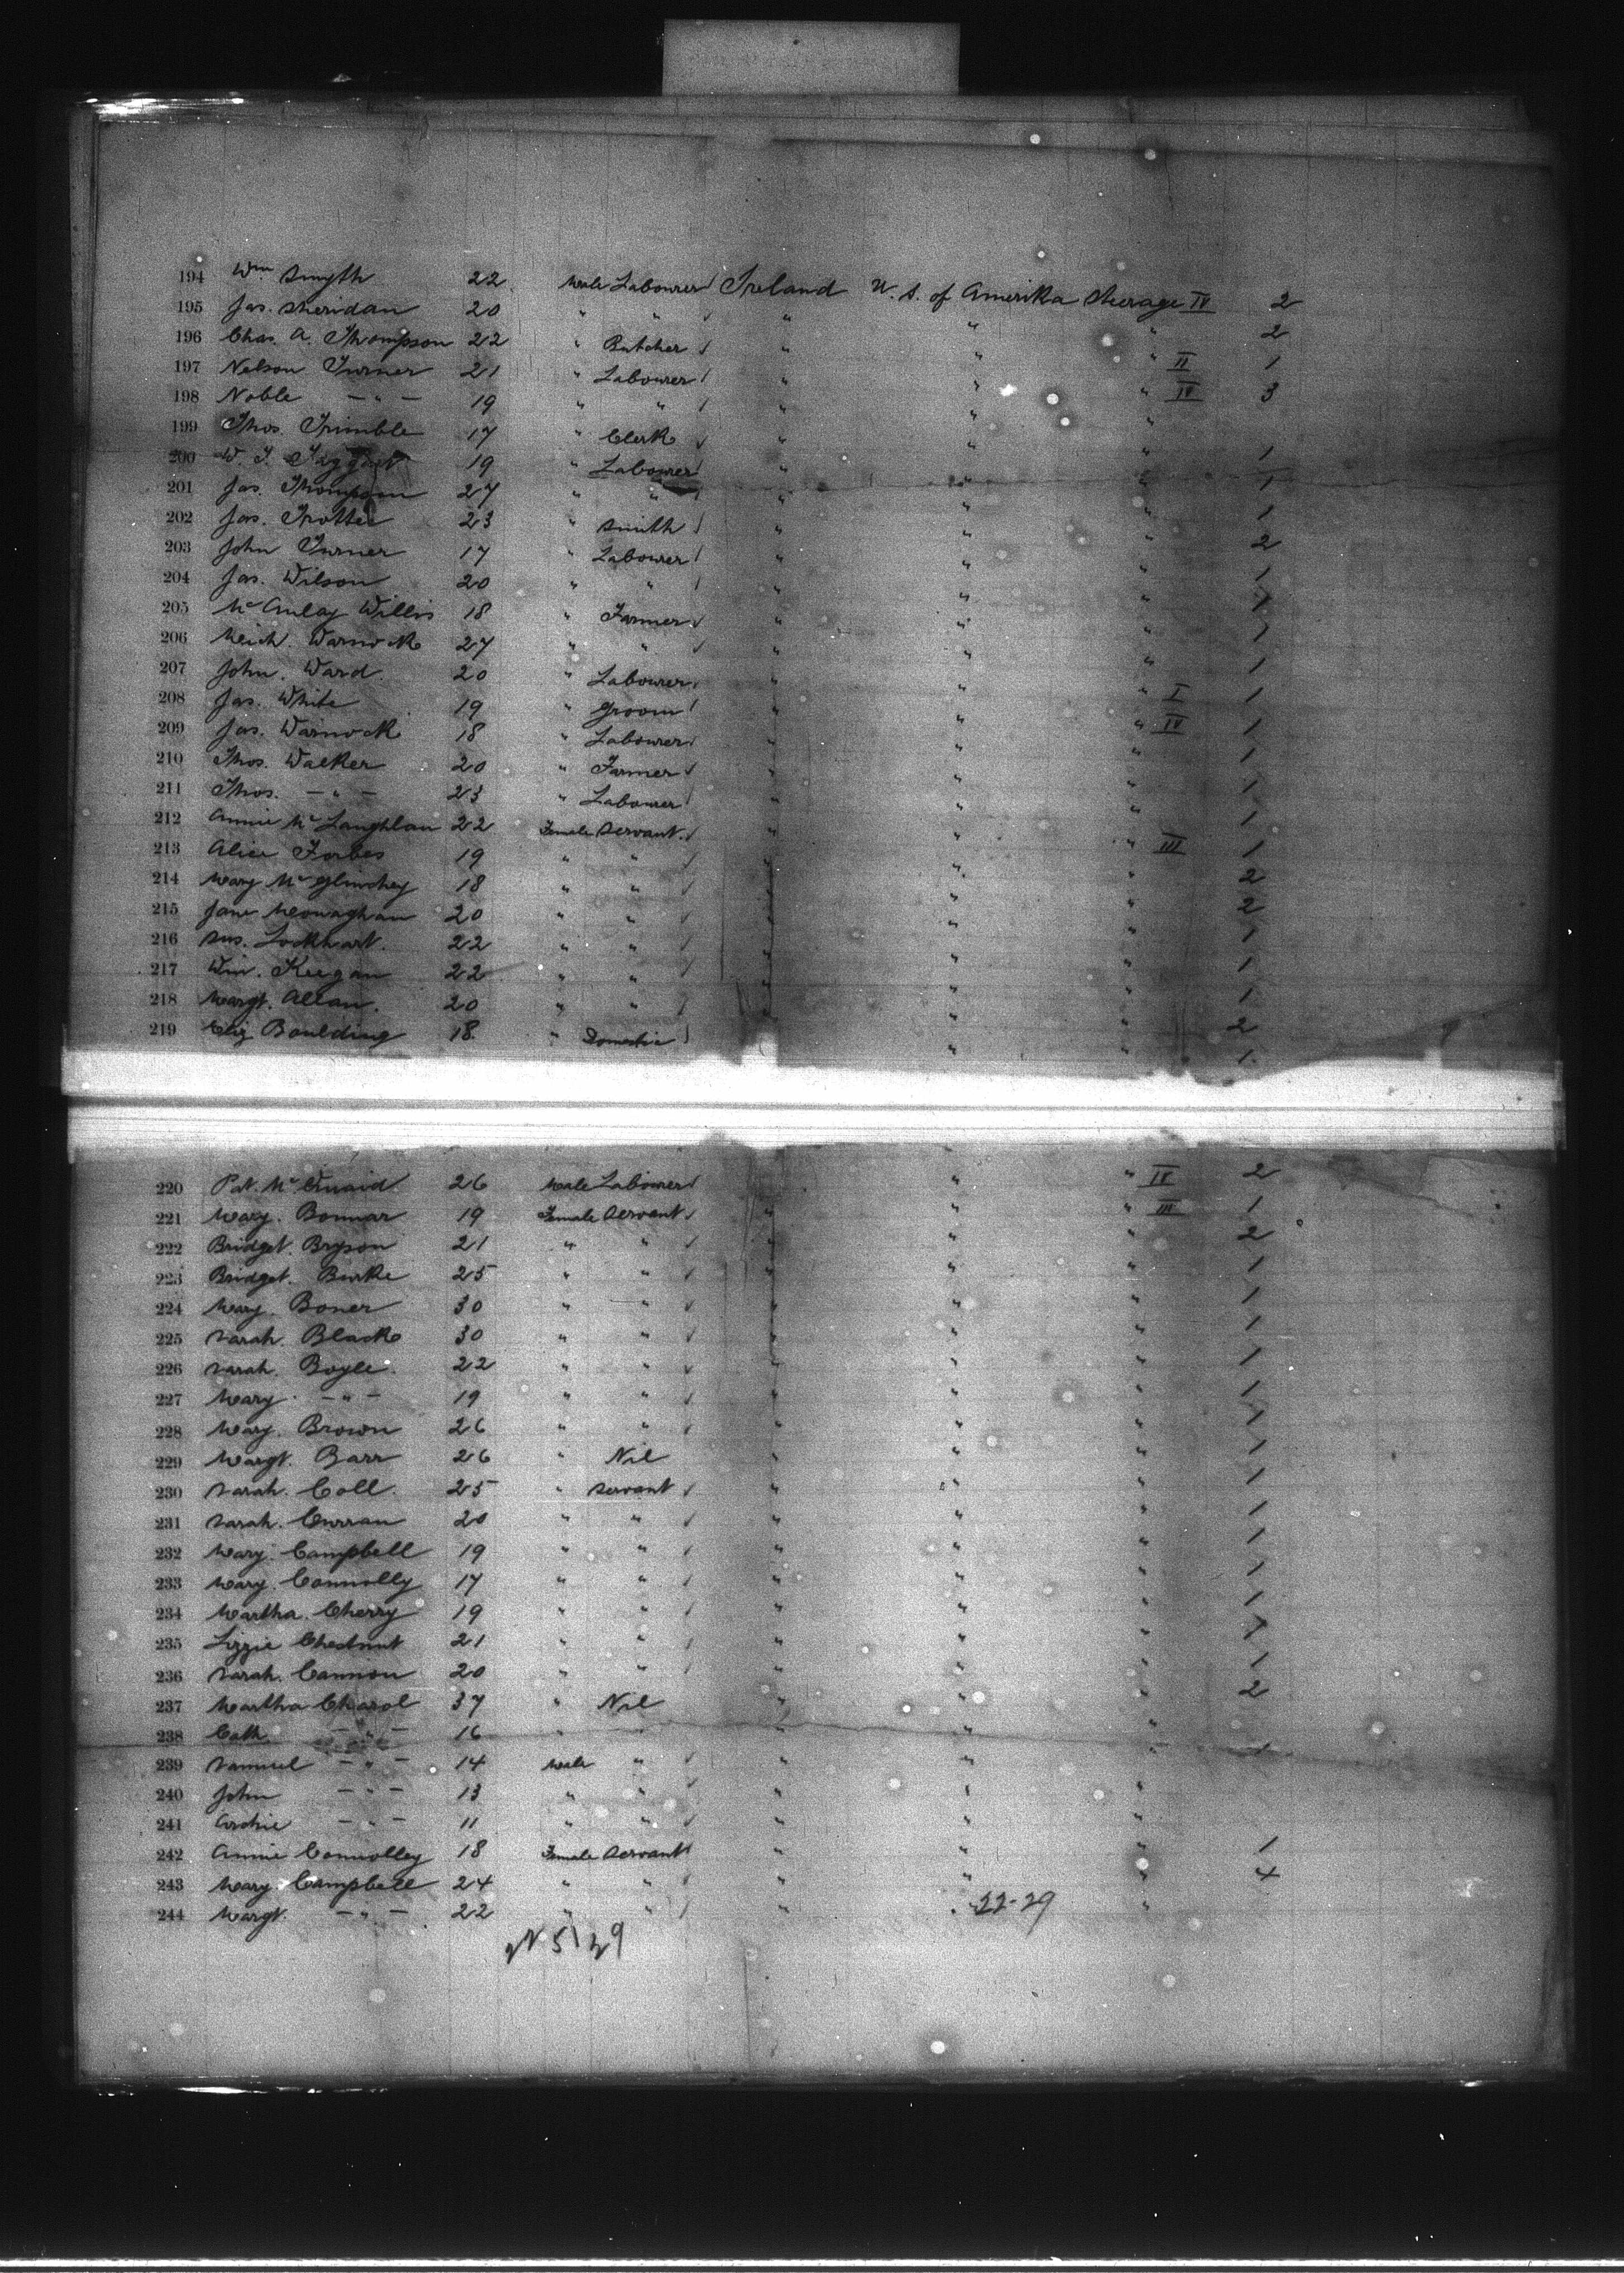 194 Wm Smyth 22 Male Labourer Ireland U. S. of Amerika Steerage IV 2
195 Jas. Sheridan 20 " " " " " 2
196 Chas. A. Thompson 22 " Butcher " " " II 1
197 Nelson Turner 21 " Labourer " " " IV 3
198 Noble — " — 19 " " " " "
199 Thos. Trimble 17 " Clerk " " " 1
200 W. J. Taggart 19 " Labourer " " " 1
201 Jas. Thompson 27 " " " " " 1
202 Jas. Trotter 23 " Smith " " " 2
203 John Turner 17 " Labourer " " " 1
204 Jas. Wilson 20 " " " " " 1
205 McAulay Willis 18 " Farmer " " " 1
206 Mich. Warnock 27 " " " " " 1
207 John. Ward 20 " Labourer " " " I 1
208 Jas. White 19 " Groom " " " IV 1
209 Jas. Warnock 18 " Labourer " " " 1
210 Thos. Walker 20 " Farmer " " " 1
211 Thos. — " — 23 " Labourer " " " 1
212 Annie McLaughlan 22 Female Servant " " " III 1
213 Alice Forbes 19 " " " " " 2
214 Mary McGlinchey 18 " " " " " 2
215 Jane Monaghan 20 " " " " " 1
216 Sus. Lockhart. 22 " " " " " 1
217 Win. Keegan 22 " " " " " 1
218 Margt. Allan. 20 " " " " " 2
219 Eliz Boulding 18 " Domestic " " 1
220 Pat. McQuaid 26 Male Labourer " " IV 2
221 Mary. Bonnar 19 Female Servant " " " III 1
222 Bridget. Bryson 21 " " " " " 2
223 Bridget. Burke 25 " " " " " 1
224 Mary. Boner 30 " " " " " 1
225 Sarah. Black 30 " " " " " 1
226 Sarah. Boyle. 22 " " " " " 1
227 Mary — " — 19 " " " " " 1
228 Mary. Brown 26 " " " " " 1
229 Margt. Barr 26 " Nil " " " 1
230 Sarah. Coll. 25 " Servant " " " 1
231 Sarah. Curran 20 " " " " " 1
232 Mary. Campbell 19 " " " " " 1
233 Mary. Connolly 17 " " " " " 1
234 Martha. Cherry 19 " " " " " 1
235 Lizzie Chestnut 21 " " " " " 1
236 Sarah. Cannon 20 " " " " " 1
237 Martha Charol 37 " Nil " " " 2
238 Cath — " — 16 " " " " "
239 Samuel — " — 14 Male " " " " 1
240 John — " — 13 " " " " "
241 Archie — " — 11 " " " " "
242 Annie Connolley 18 Female Servant " " " 1
243 Mary. Campbell 24 " " " " " 4
244 Margt. — " — 22 " " " " 22-29 "